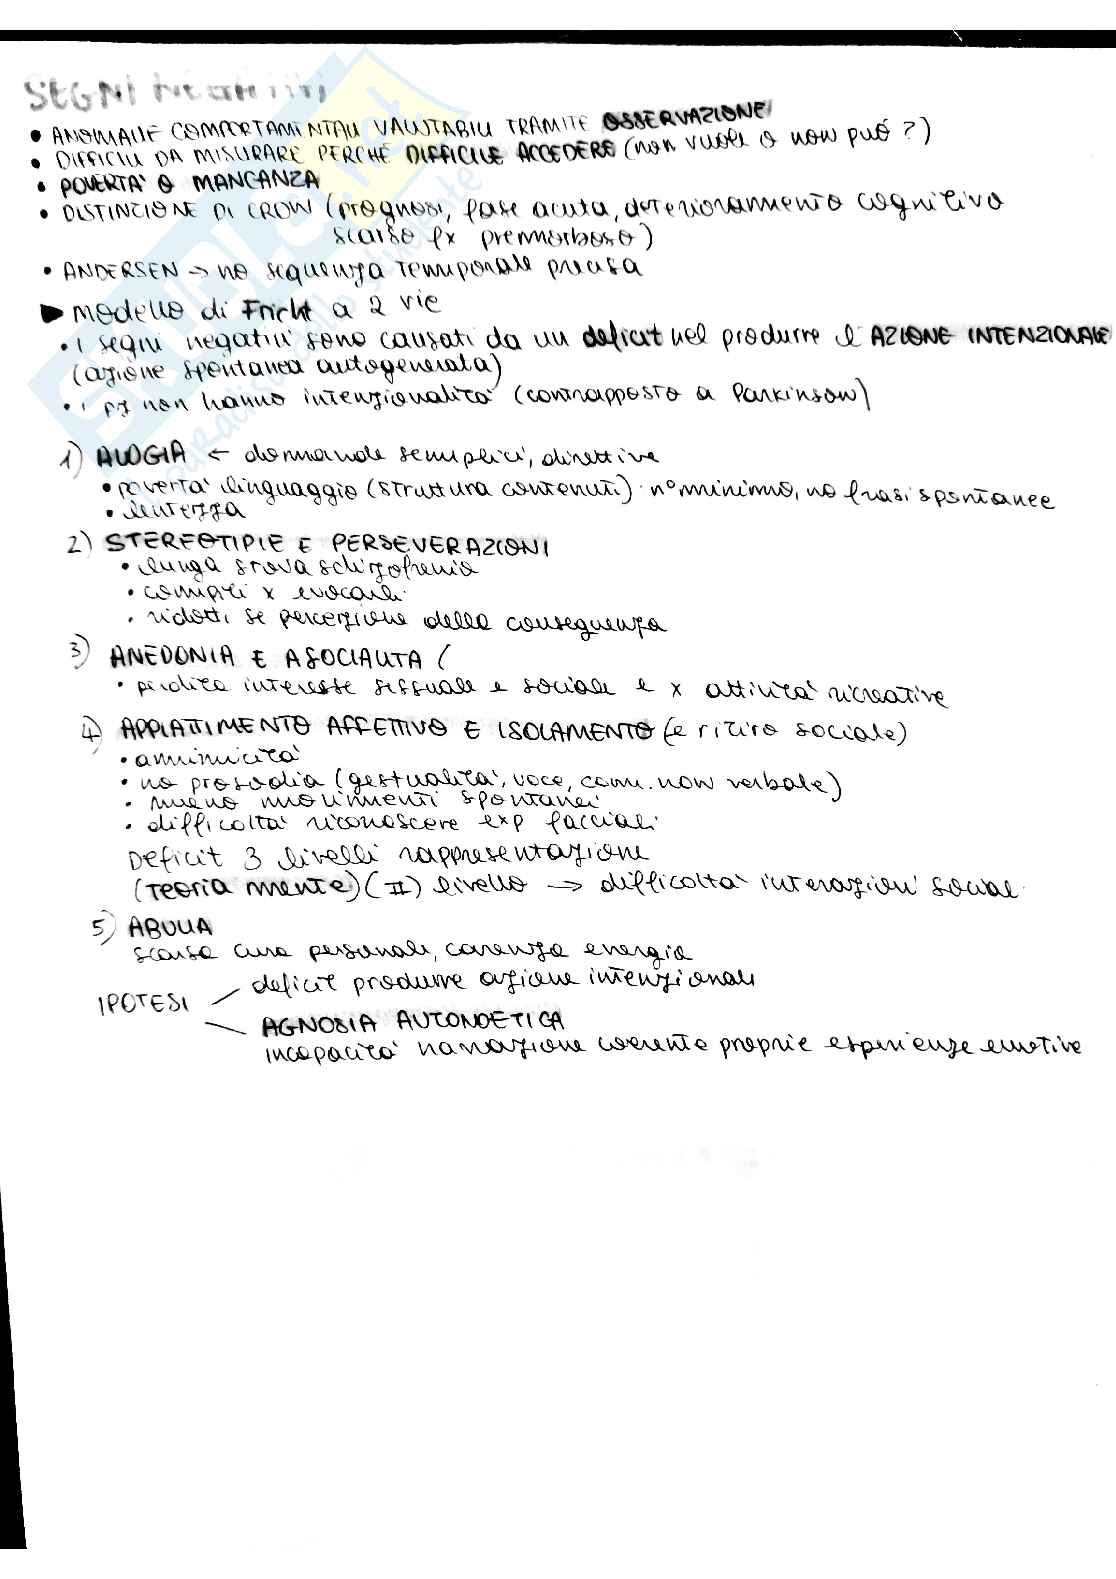 SEGNI NEGATIVI
• ANOMALIE COMPORTAMENTALI VALUTABILI TRAMITE OSSERVAZIONE
• DIFFICILI DA MISURARE PERCHÉ DIFFICILE ACCEDERE (non vuole o non può?)
• POVERTA' O MANCANZA
• DISTINZIONE DI CROW (prognosi, fase acuta, deterioramento cognitivo
scarso fx premorboso)
• ANDERSEN -> no sequenza temporale precisa
► modello di Fricht a 2 vie
• i segni negativi sono causati da un deficit nel produrre l'AZIONE INTENZIONALE
(azione spontanea autogenerata)
• i pz non hanno intenzionalità (contrapposto a Parkinson)
1) ALOGIA ← domande semplici, direttive
• povertà linguaggio (struttura contenuti) n° minimo, no frasi spontanee
• lentezza
2) STEREOTIPIE E PERSEVERAZIONI
• lunga storia schizofrenia
• compiti x evocarli
• ridotti se percezione delle conseguenza
3) ANEDONIA E ASOCIALITA (
• perdita interesse sessuale e sociale e x attività ricreative
4) APPIATTIMENTO AFFETTIVO E ISOLAMENTO (e ritiro sociale)
• amimicità
• no prosodia (gestualità, voce, com. non verbale)
• meno movimenti spontanei
• difficoltà riconoscere exp facciali
Deficit 3 livelli rappresentazione
(Teoria mente) (II) livello -> difficoltà interazioni sociali
5) ABULIA
scarsa cura personale, carenza energia
IPOTESI
deficit produrre azione intenzionali
AGNOSIA AUTONOETICA
incapacità narrazione coerente proprie esperienze emotive